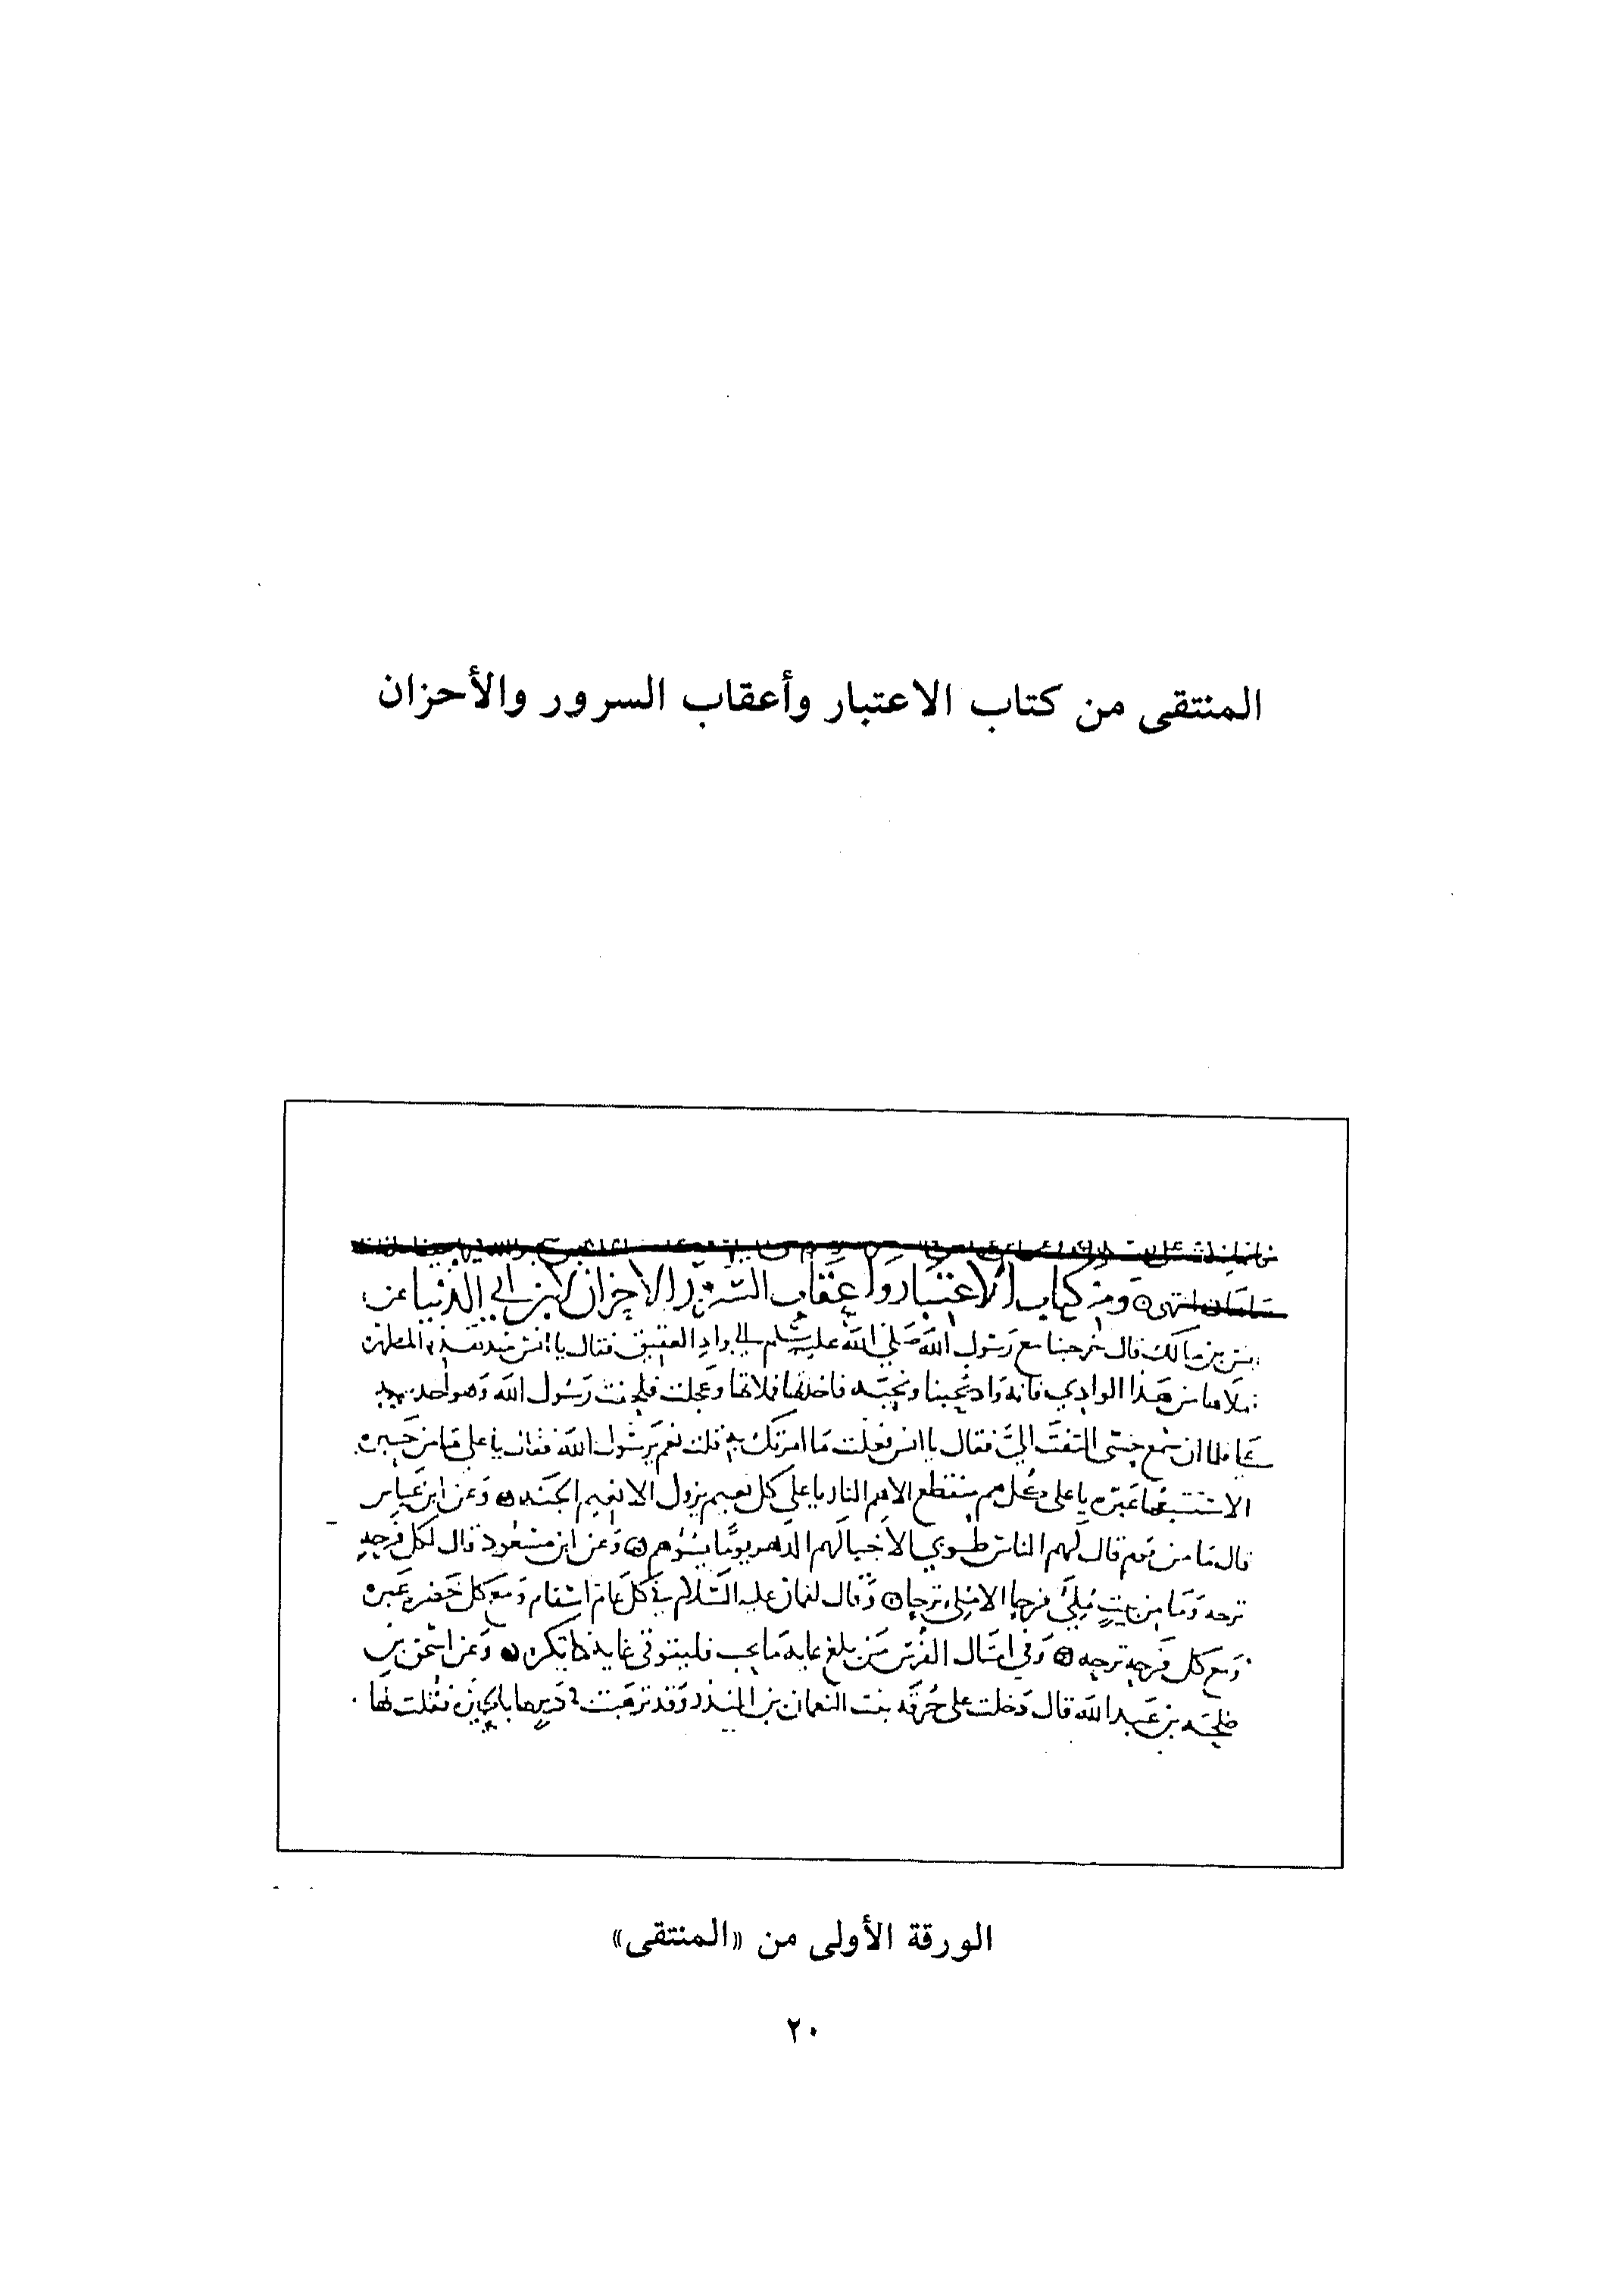 المنتقى من كتاب الاعتبار وأعقاب السرور والأحزان
ومن كتاب الاعتبار واعقاب السرور والاحزان لابن ابي الدنيا عن
بن مالك قال خرجنا مع رسول الله صلى الله عليه وسلم الى وادِ العقيق فقال يا انس خذ هذه المطهره
املاها من هذا الوادي فانه واد يحبنا ونحبه فاخذتها فملاتها وعجلت فلحقت رسول الله وهو احد بيد
على فلما ان سمع حسى التفتَ اليَّ فقال يا انس فعلت ما امرتك به قلت نعم يرسول الله فقال يا على ما من حبره
الا ستتبعها عبره يا على كل هم منقطع الا هم النار يا على كل نعيم يزول الا نعيم الجنه وعن ابن عباس
قال ما من قوم قال لهم الناس طوبي الا خبا لهم الدهر يومًا يسؤهم وعن ابن مسعود قال لكل فرحهٍ
ترحه وما من بيتٍ مُلئَ فرحا الا ملى ترحا وقال لقمان عليه السلام في كل عام اسقام ومع كل عبره
ومع كل فرحهٍ ترحه وفي امثال الفرس من بلغ غايه ما يحب فليتوقى غايه ما يكره وعن اسحق بن
طلحه بن عبد الله قال دخلت على حُرقه بنت النعمان بن المنذر وقد ترهبت في ديرٍ لها بالحيره فقلت لها
الورقة الأولى من «المنتقى»
٢٠